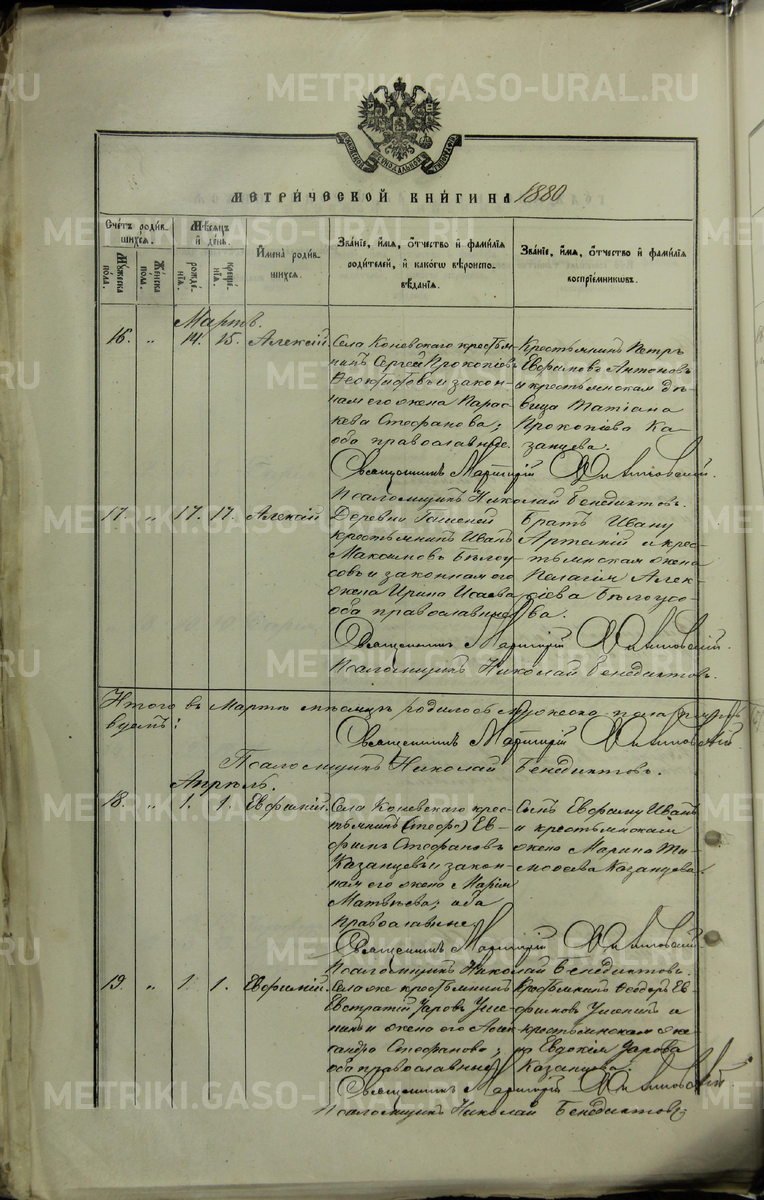 METRIKI.GASO-URAL.RU
МЕТРИ́ЧЕСКОЙ КНИ́ГИ НА 1880
Счéтъ роди́в-
шихся.
Мꙋ́жеска пола.
Же́нска пола.
Мѣ́сяцъ
и́ де́нь.
рожде́-
нія.
креще́-
нія.
И́мена̀ роди́в-
шихся.
Зва́ніе, и́мя, о́тчество и́ фами́лія
роди́телей, и́ како́гѡ вѣроиспо-
вѣ́данія.
Зва́ніе, и́мя, о́тчество и́ фами́лія
воспріе́мниковъ.
Мартъ.
16. „ 14. 15. Алексій
Села Коневскаго крестья-
нинъ Сергей Прокопіевъ
Феоктистовъ и закон-
ная его жена Парас-
кева Стефанова;
оба православные.
Крестьянинъ Петръ
Евфимовъ Антоновъ
и крестьянская дѣ-
вица Татіана
Прокопіева Ка-
занцева.
Священникъ Мартирій
Псаломщикъ Николай Бенедиктовъ.
17. „ 17. 17. Алексій
Деревни
крестьянинъ Иванъ
Максимовъ Бѣлоу-
совъ и законная его
жена Ирина Исаева
оба православные
Братъ Ивану
и крес-
тьянская жена
Пелагія Алек-
сіева Бѣлоусо-
ва.
Священникъ Мартирій
Псаломщикъ Николай Бенедиктовъ.
Итого въ Мартѣ мѣсяцѣ родилось мужеска пола
Священникъ Мартирій
Псаломщикъ Николай Бенедиктовъ.
Апрѣль.
18. „ 1. 1. Евфимій.
Села Коневскаго крес-
тьянинъ Ев-
фимъ Стефановъ
Казанцевъ и закон-
ная его жена Марія
Матвѣева; оба
православные
Сынъ Евфиму Иванъ
и крестьянская
жена Марина Ти-
моѳеева Казанцева.
Священникъ Мартирій
Псаломщикъ Николай Бенедиктовъ.
19. „ 1. 1. Евфимій.
Села же крестьянинъ
Евстратій Уаровъ
и жена его Алек-
сандра Стефанова;
оба православные
Крестьянинъ Феодоръ Ев-
фимовъ и
крестьянская
Евдокія Уарова
Казанцева.
Священникъ Мартирій
Псаломщикъ Николай Бенедиктовъ